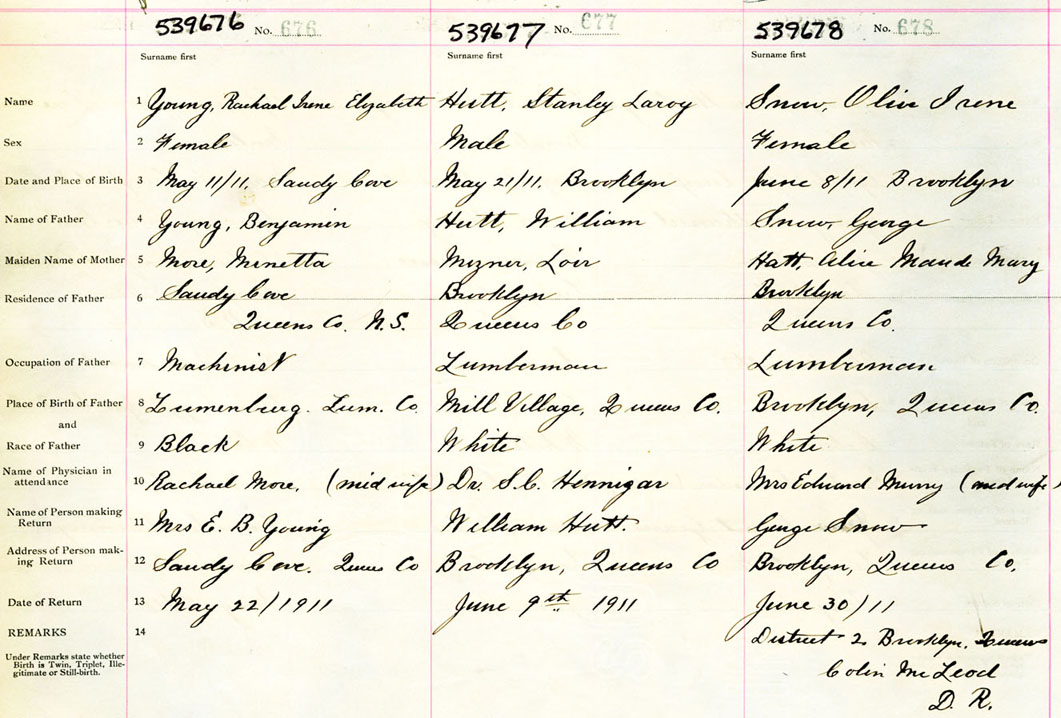 539676 No. 676 539677 No. 677 539678 No. 678
Surname first Surname first Surname first
Name 1 Young, Rachael Irene Elizabeth Hutt, Stanley Laroy Snow, Olive Irene
Sex 2 Female Male Female
Date and Place of Birth 3 May 11/11. Sandy Cove May 21/11. Brooklyn June 8/11 Brooklyn
Name of Father 4 Young, Benjamin Hutt, William Snow, George
Maiden Name of Mother 5 More, Minetta Mizner, Loir Hatt, Alice Maude Mary
Residence of Father 6 Sandy Cove Brooklyn Brooklyn
Queens Co. N.S. Queens Co Queens Co.
Occupation of Father 7 Machinist Lumberman Lumberman
Place of Birth of Father 8 Lunenburg. Lun. Co. Mill Village, Queens Co. Brooklyn, Queens Co.
and
Race of Father 9 Black White White
Name of Physician in
attendance 10 Rachael More, (midwife) Dr. S.C. Hennigar Mrs Edward Murry (midwife)
Name of Person making
Return 11 Mrs E. B. Young William Hutt. George Snow
Address of Person mak-
ing Return 12 Sandy Cove. Queens Co Brooklyn, Queens Co Brooklyn, Queens Co.
Date of Return 13 May 22/1911 June 9th 1911 June 30/11
REMARKS 14 District 2 Brooklyn, Queens
Under Remarks state whether
Birth is Twin, Triplet, Ille-
gitimate or Still-birth.
Colin McLeod
D. R.